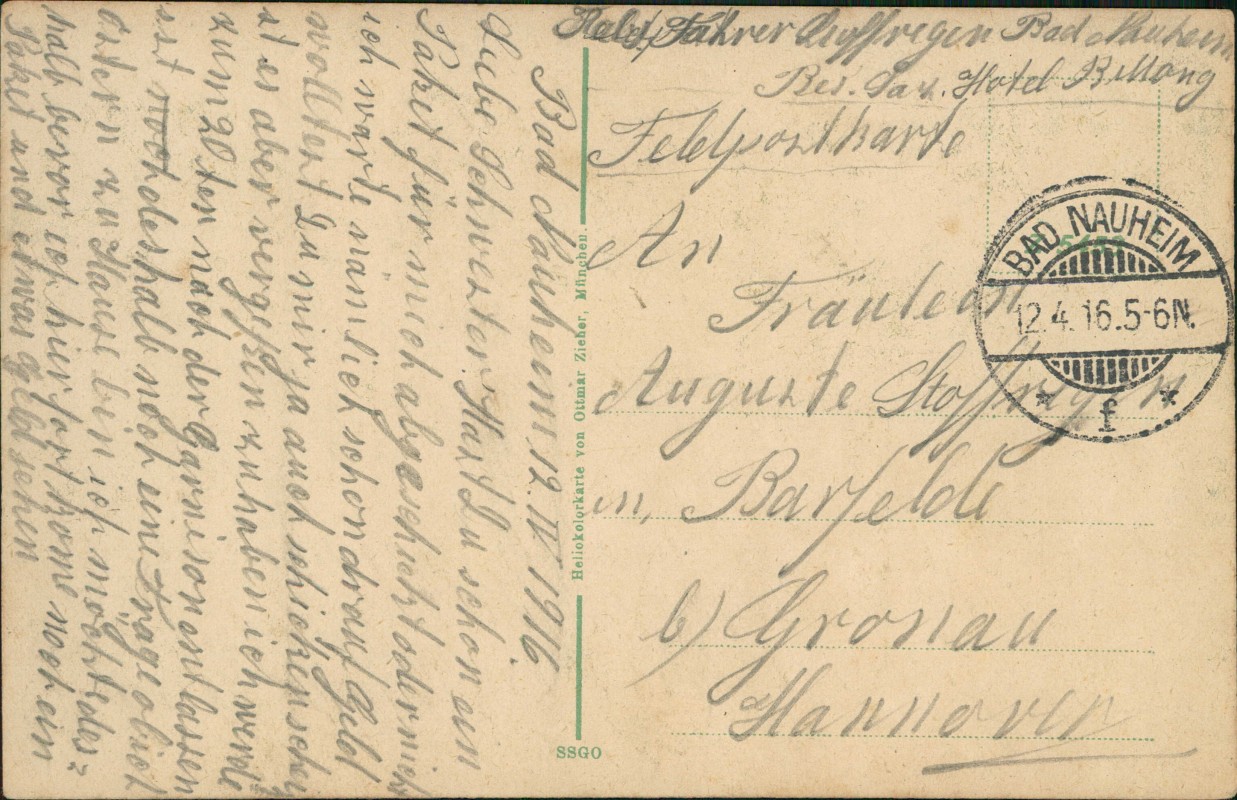 Fahrer Stoffregen Bad Nauheim
Res. Laz. Hotel Billong
Feldpostkarte
An
Fräulein
Auguste Stoffregen
in, Barfelde
b) Gronau
Hannover
BAD NAUHEIM
12.4.16.5-6N.
* f *
Heliokolorkarte von Ottmar Zieher, München.
SSGO
Bad Nauheim 12. IV 1916.
Liebe Schwester, Hast Du schon ein
Paket für mich abgeschickt oder nich
ich warte nämlich schon drauf Geld
wolltest Du mir ja auch schicken
ist es aber vergeßen zu haben ich werde
zum 20ten nach der Garnison entlassen
erst noch deshalb noch eine Frage ob ich
Ostern zu Hause bin ich möchte des=
halb bevor ich hier fort kome noch ein
Paket und etwas Geld sehen